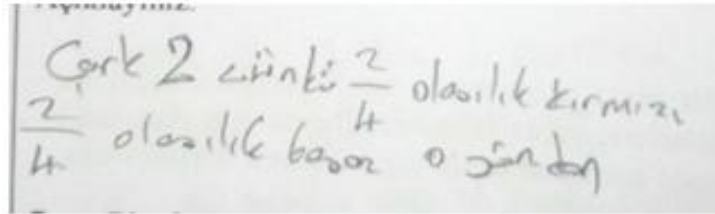 Çark 2 çünkü 2/4 olasılık kırmızı
2/4 olasılık beyaz o yünden